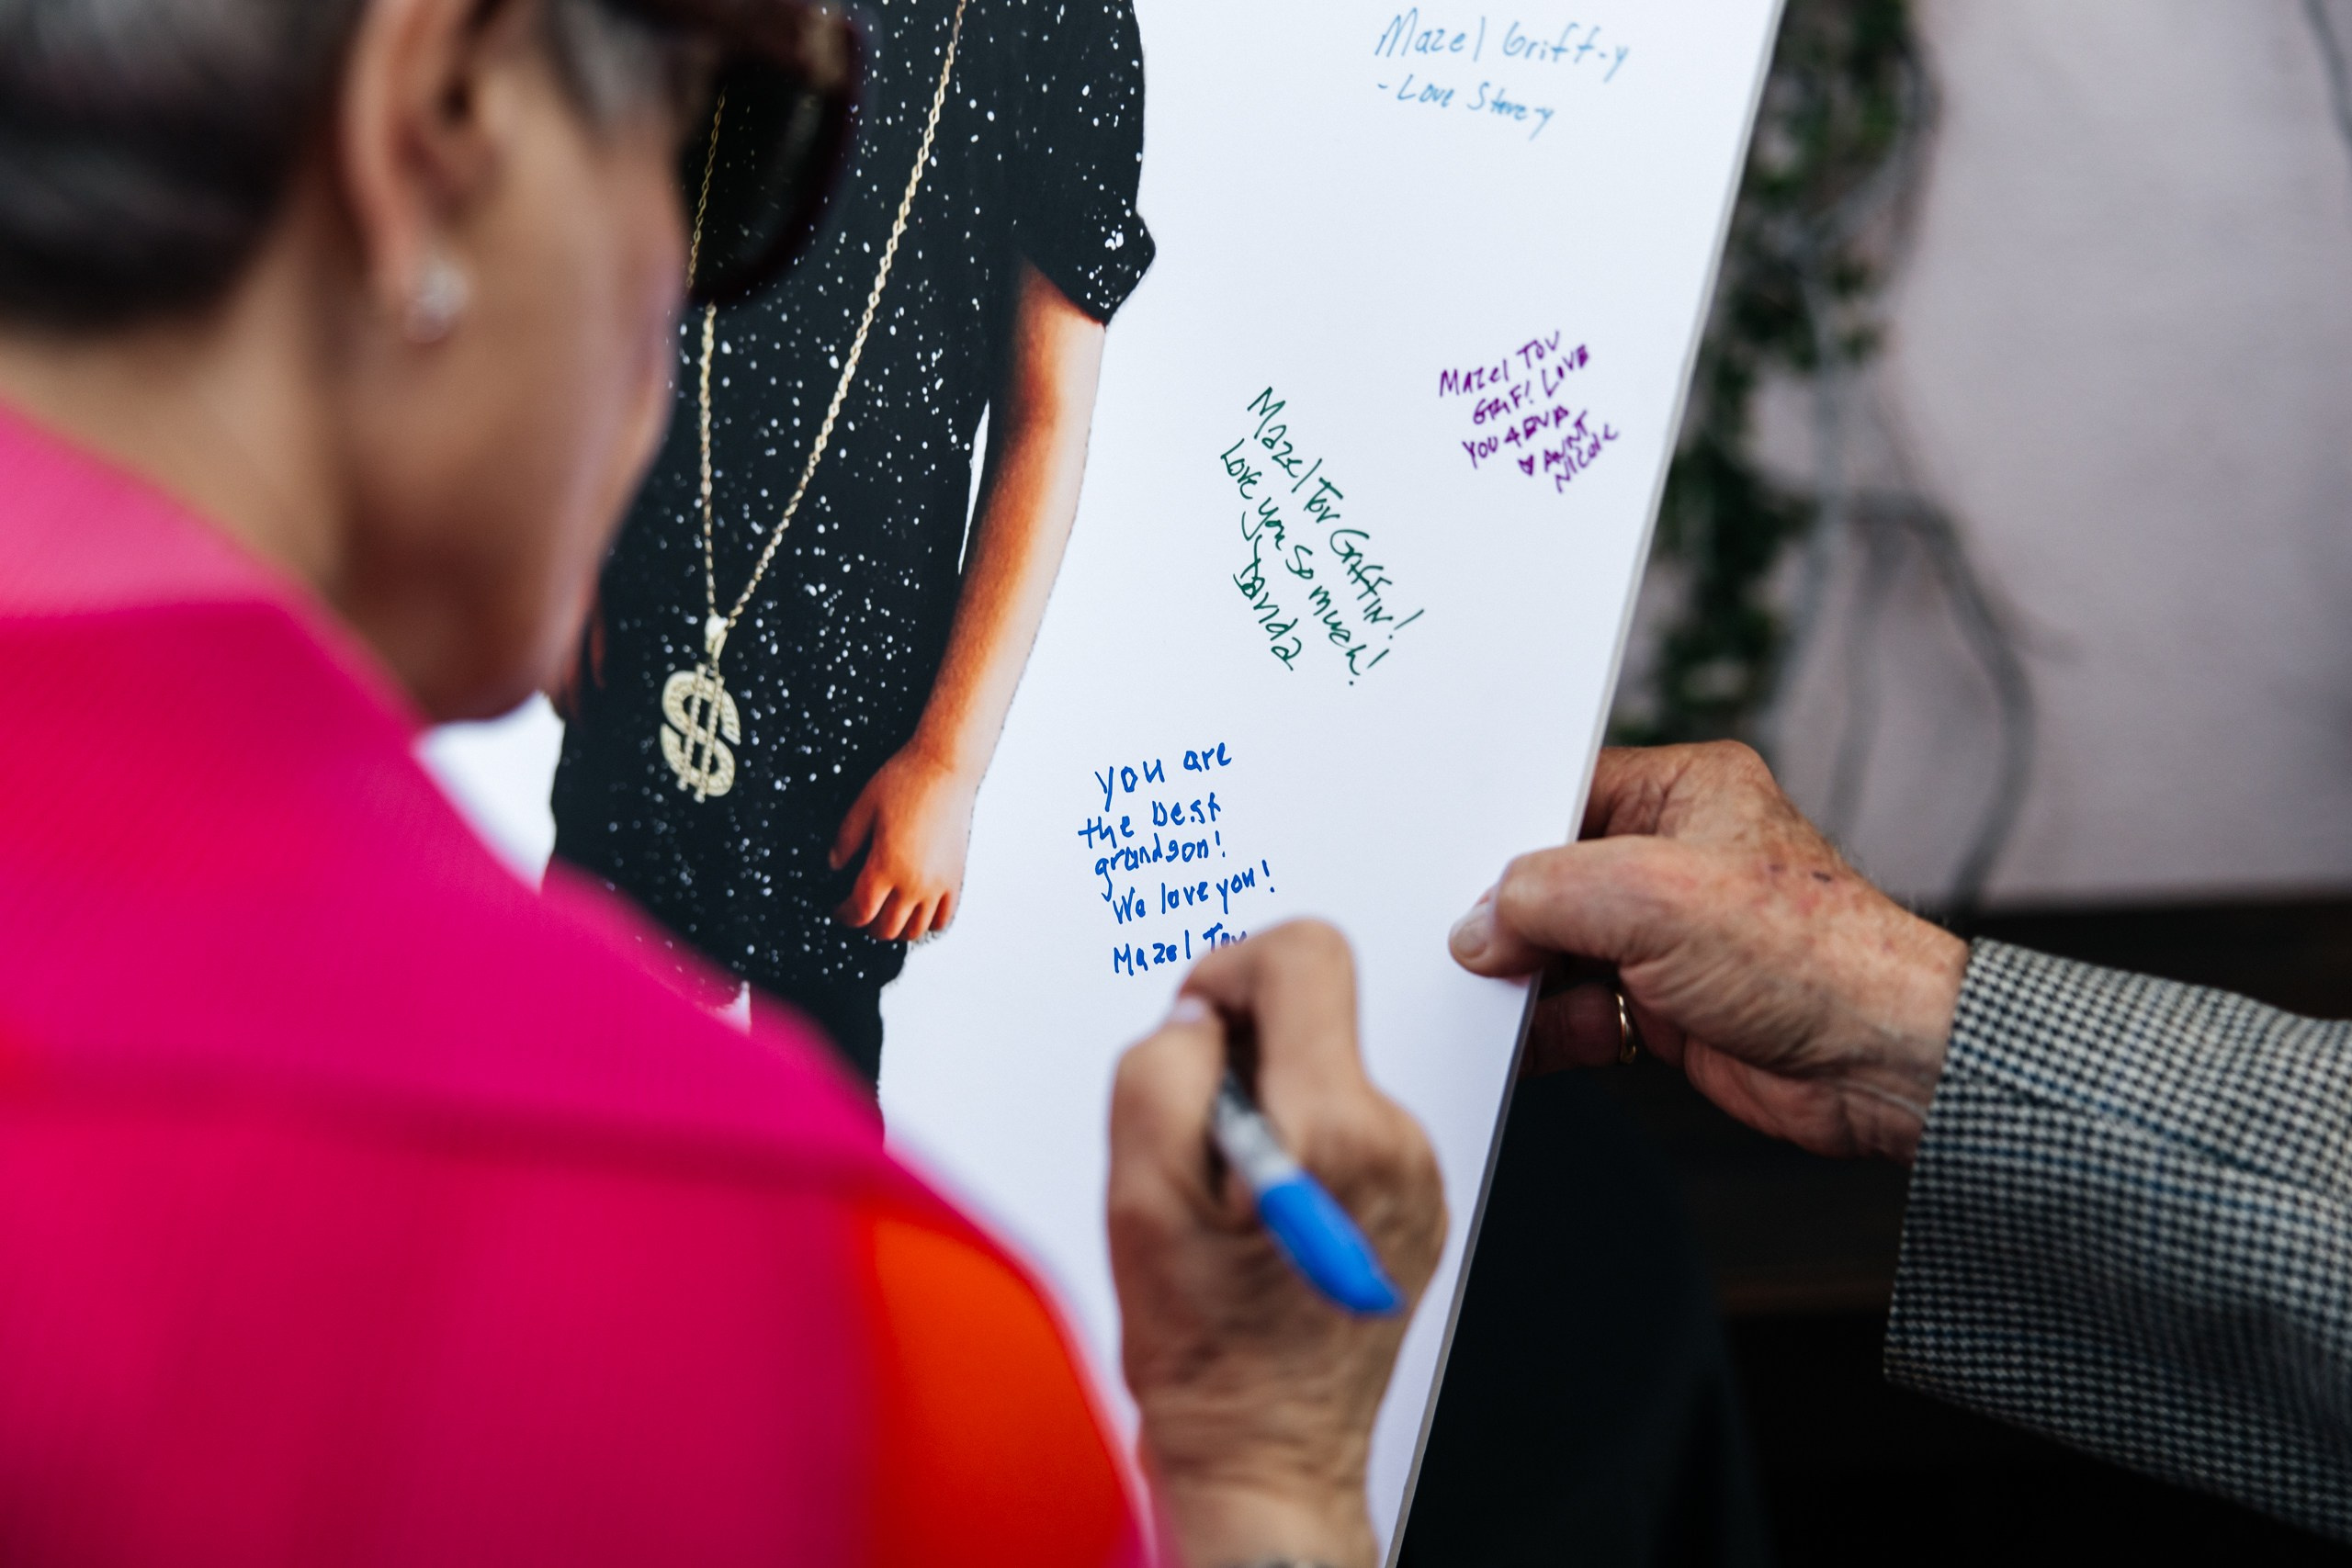 Mazel Griff-y
- Love Steve-y
Mazel Tov
GRIF! LOVE
YOU 4EVA
♥ AUNT
NICOLE
Mazel Tov Griffin!
Love you so much!
Davida
you are
the best
grandson!
We love you!
Mazel Tov